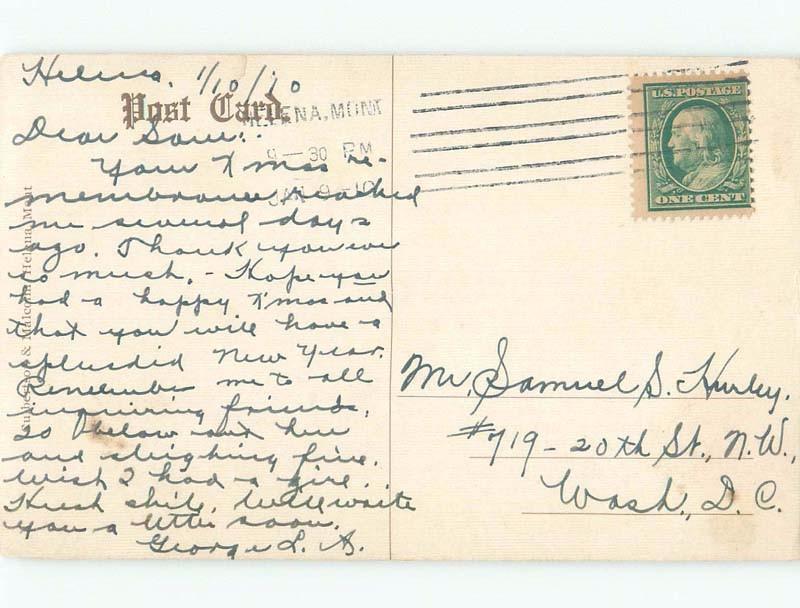 Helena, 1/10/10
Post Card.
HELENA, MONT
9-30 PM
JAN 9-10
U.S. POSTAGE
ONE CENT
Dear Sam:
Your X'mas re-
membrance reached
me several days
ago. Thank you ever
so much. - Hope you
had a happy X'mas and
that you will have a
splendid New Year.
Remember me to all
inquiring friends.
20 below out here
and sleighing fine.
Wish I had a girl.
Will write
you a letter soon.
George L. S.
& Malcolm, Helena, Mont
Mr. Samuel S. Hurley.
#719-20th St., N.W.,
Wash., D.C.